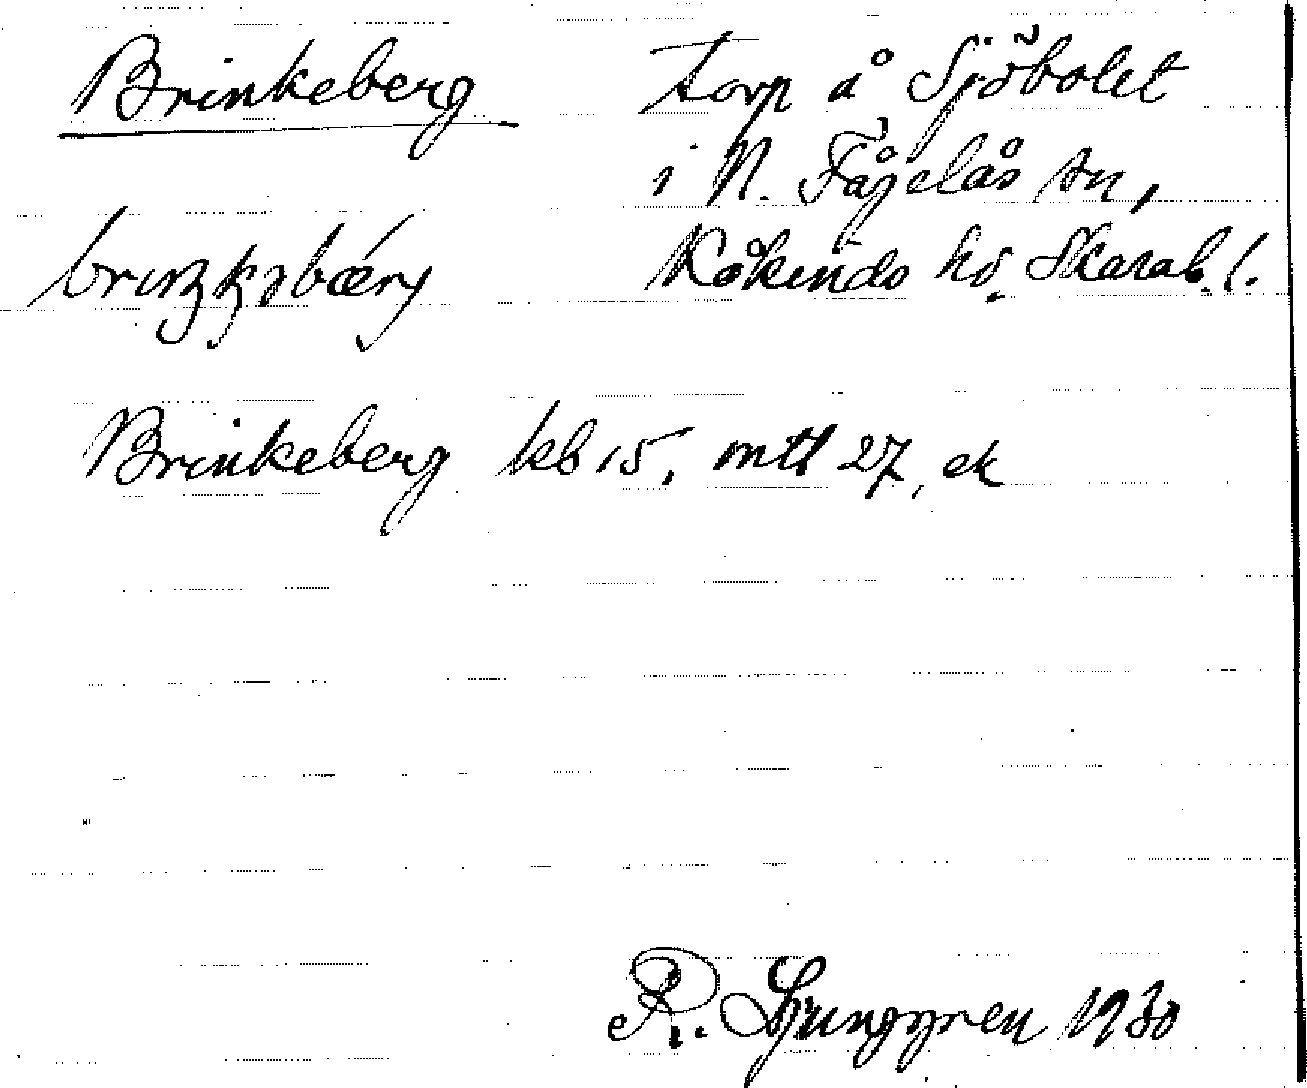 Brinkeberg torp å Sjöbolet
i N. Fågelås sn,
Kåkinds hd. Skarab. l.
Brinkeberg kb 15, mtl 27, ek
R. Ljunggren 1930